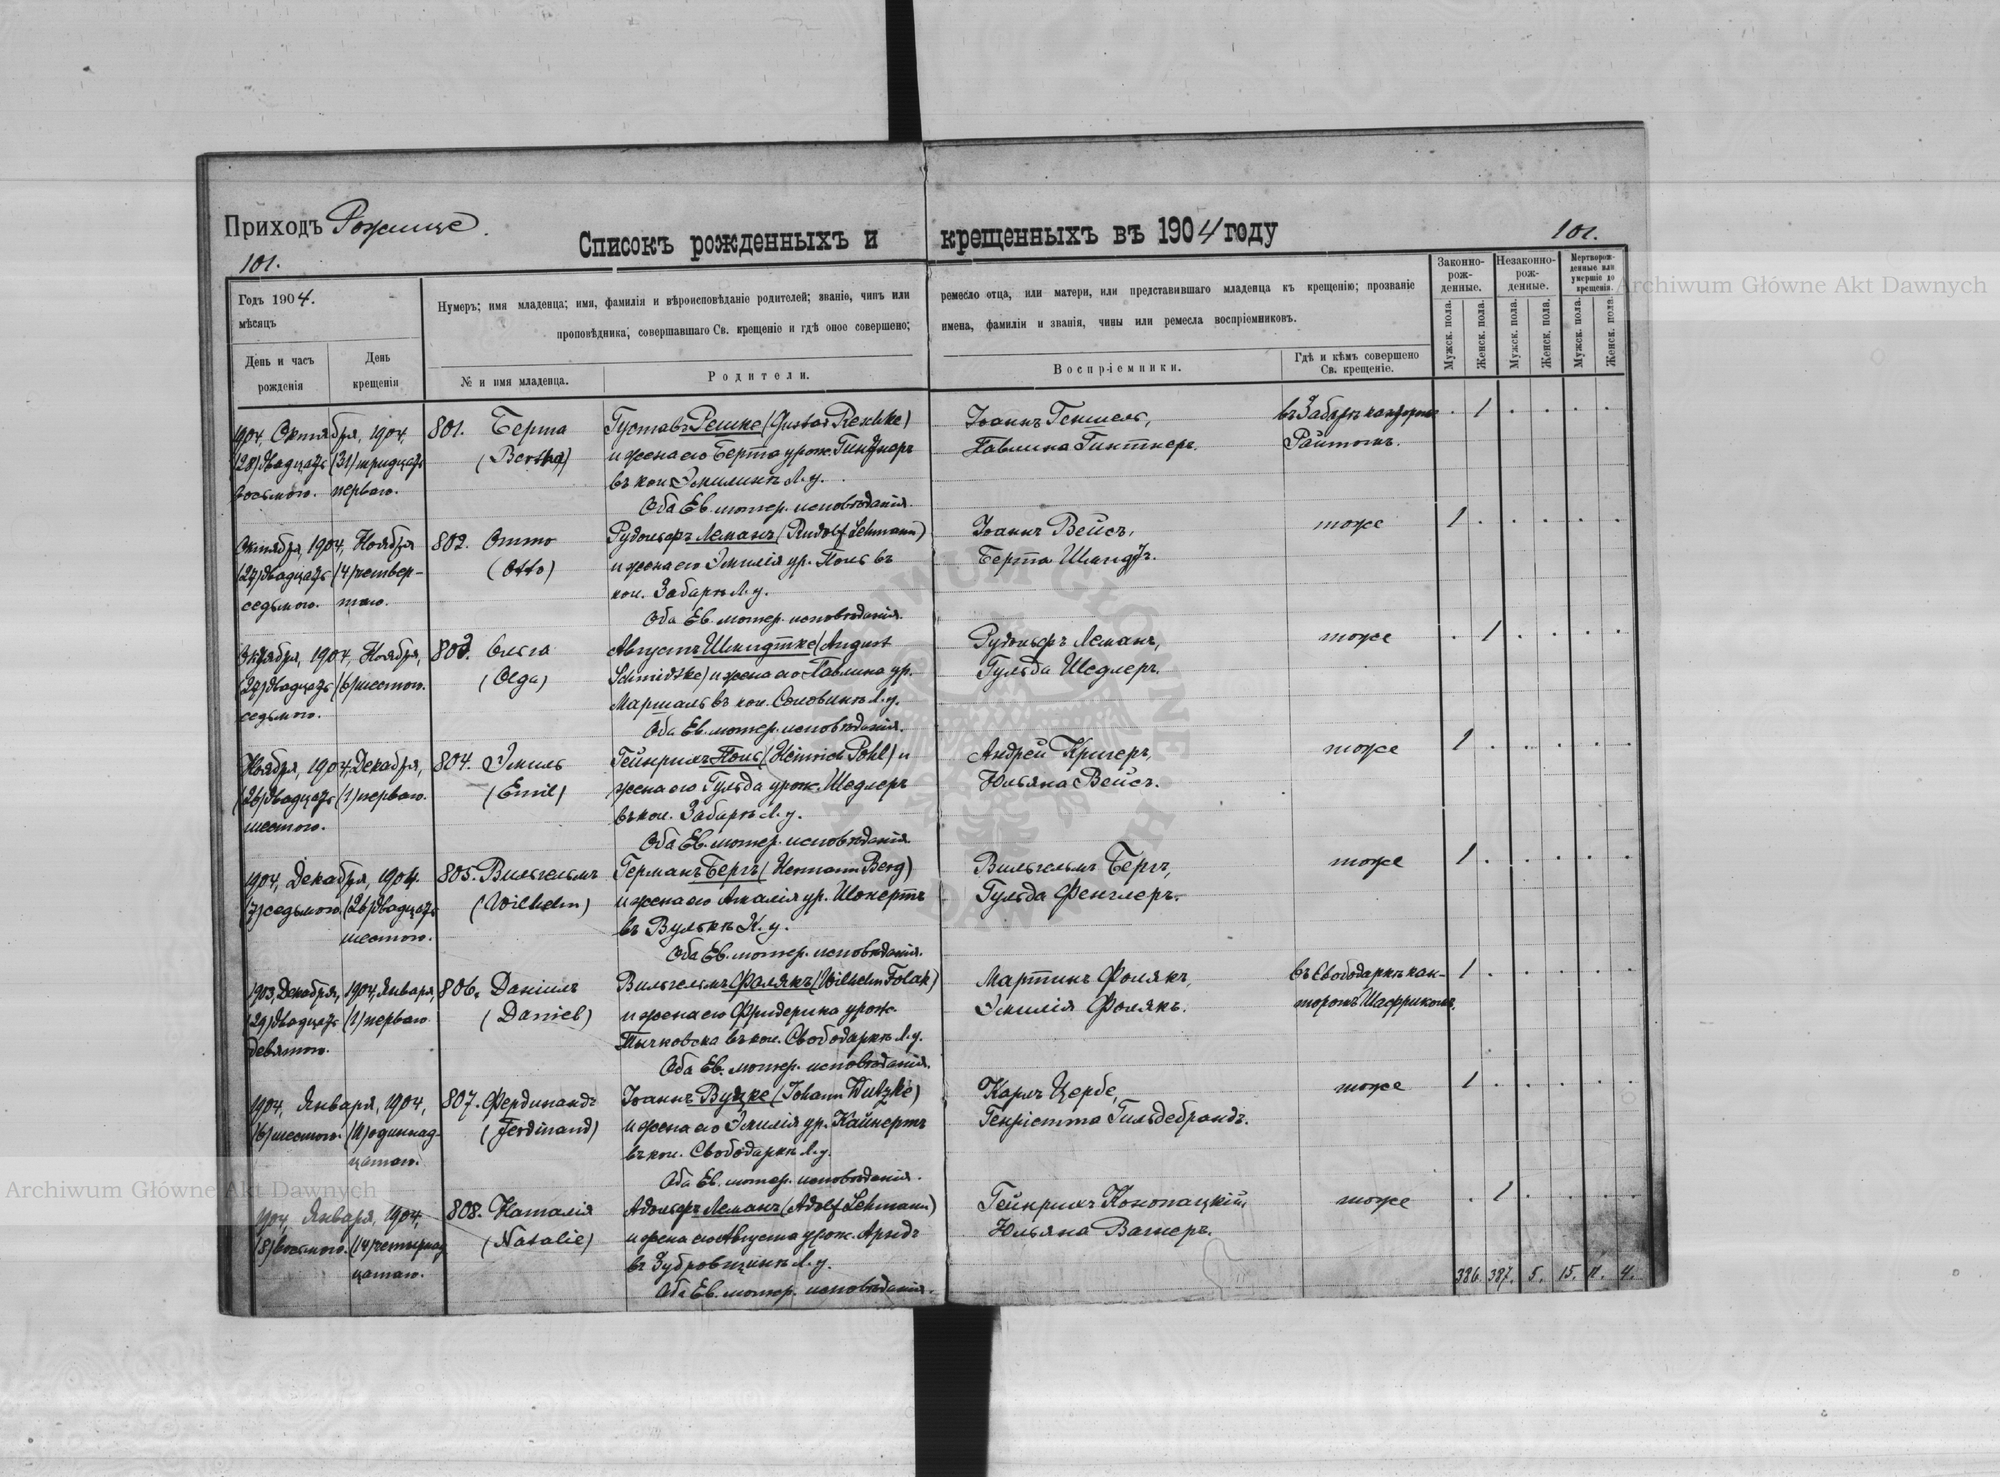 Приходъ Рожище.
Списокъ рожденныхъ и крещенныхъ въ 1904 году
101.
101.
Годъ 1904.
мѣсяцъ
День и часъ рожденія
День крещенія
Нумеръ; имя младенца; имя, фамилія и вѣроисповѣданіе родителей; званіе, чинъ или ремесло отца, или матери, или представившаго младенца къ крещенію; прозваніе
проповѣдника, совершавшаго Св. крещеніе и гдѣ оное совершено; имена, фамиліи и званія, чины или ремесла воспріемниковъ.
№ и имя младенца.
Родители.
Воспріемники.
Гдѣ и кѣмъ совершено
Св. крещеніе.
Законно-
рож-
денные.
Незаконно-
рож-
денные.
Мертворож-
денные или
умершіе до
крещенія.
Мужск. пола.
Женск. пола.
Мужск. пола.
Женск. пола.
Мужск. пола.
Женск. пола.
1904, Октября, 1904,
(28) двадцать восьмого.
(31) тридцать перваго.
801. Берта
(Bertha)
Густавъ Решке (Gustav Reschke)
и жена его Берта урож.
въ кол. Эмилинѣ Л. у.
Оба Ев. лютер. исповѣданія.
Іоаннъ Геншель,
Павлина Гинтнеръ.
въ Забарѣ кантором
1
Октября, 1904, Ноября
(27) двадцать седьмого.
(4) четвер-
таго.
802. Отто
(Otto)
Рудольфъ Леманъ (Rudolf Lehmann)
и жена его Эмилія ур. Поль въ
кол. Забарѣ Л. у.
Оба Ев. лютер. исповѣданія.
Іоаннъ Вейсъ,
Берта Шмидтъ.
тоже
1
Октября, 1904, Ноября,
(27) двадцать седьмого.
(6) шестого.
803. Ольга
(Olga)
Августъ Шмидтке (August
Schmidtke) и жена его Павлина ур.
Маршаль въ кол. Л. у.
Оба Ев. лютер. исповѣданія.
Рудольфъ Леманъ,
Гульда Шедлеръ.
тоже
1
Ноября, 1904, Декабря,
(26) двадцать шестого.
(1) перваго.
804. Эмиль
(Emil)
Гейнрихъ Поль (Heinrich Pohl) и
жена его Гульда урож. Шедлеръ
въ кол. Забарѣ Л. у.
Оба Ев. лютер. исповѣданія.
Андрей Кригеръ,
Юльяна Вейсъ.
тоже
1
1904, Декабря, 1904.
(7) седьмого.
(26) двадцать шестого.
805. Вильгельмъ
(Wilhelm)
Германъ Бергъ (Hermann Berg)
и жена его Амалія ур. Шонертъ
въ Вулькѣ К. у.
Оба Ев. лютер. исповѣданія.
Вильгельмъ Бергъ,
Гульда Фенглеръ.
тоже
1
1903, Декабря, 1904, Января,
(29) двадцать девятого.
(1) перваго.
806. Даніилъ
(Daniel)
Вильгельмъ Фолякъ (Wilhelm Folak)
и жена его Фридерика урож.
въ кол. Свободаркѣ Л. у.
Оба Ев. лютер. исповѣданія.
Мартинъ Фолякъ,
Эмилія Фолякъ.
въ Свободаркѣ кан-
торомъ Шафрикомъ.
1
1904, Января, 1904,
(6) шестого.
(11) одиннад-
цатаго.
807. Фердинандъ
(Ferdinand)
Іоаннъ Вуцке (Johann Wutzke)
и жена его Эмилія ур. Кайнертъ
въ кол. Свободаркѣ Л. у.
Оба Ев. лютер. исповѣданія.
Карлъ Цербе,
Генріетта Гильдебрандъ.
тоже
1
1904, Января, 1904,
(8) восьмого.
(14) четырнад-
цатаго.
808. Наталія
(Natalie)
Адольфъ Леманъ (Adolf Lehmann)
и жена его Августа урож. Арндъ
въ Зубровщинѣ Л. у.
Оба Ев. лютер. исповѣданія.
Гейнрихъ Конопацкій,
Юльяна Вагнеръ.
тоже
1
386. 387. 5. 15. 11. 4.
Archiwum Główne Akt Dawnych
Archiwum Główne Akt Dawnych